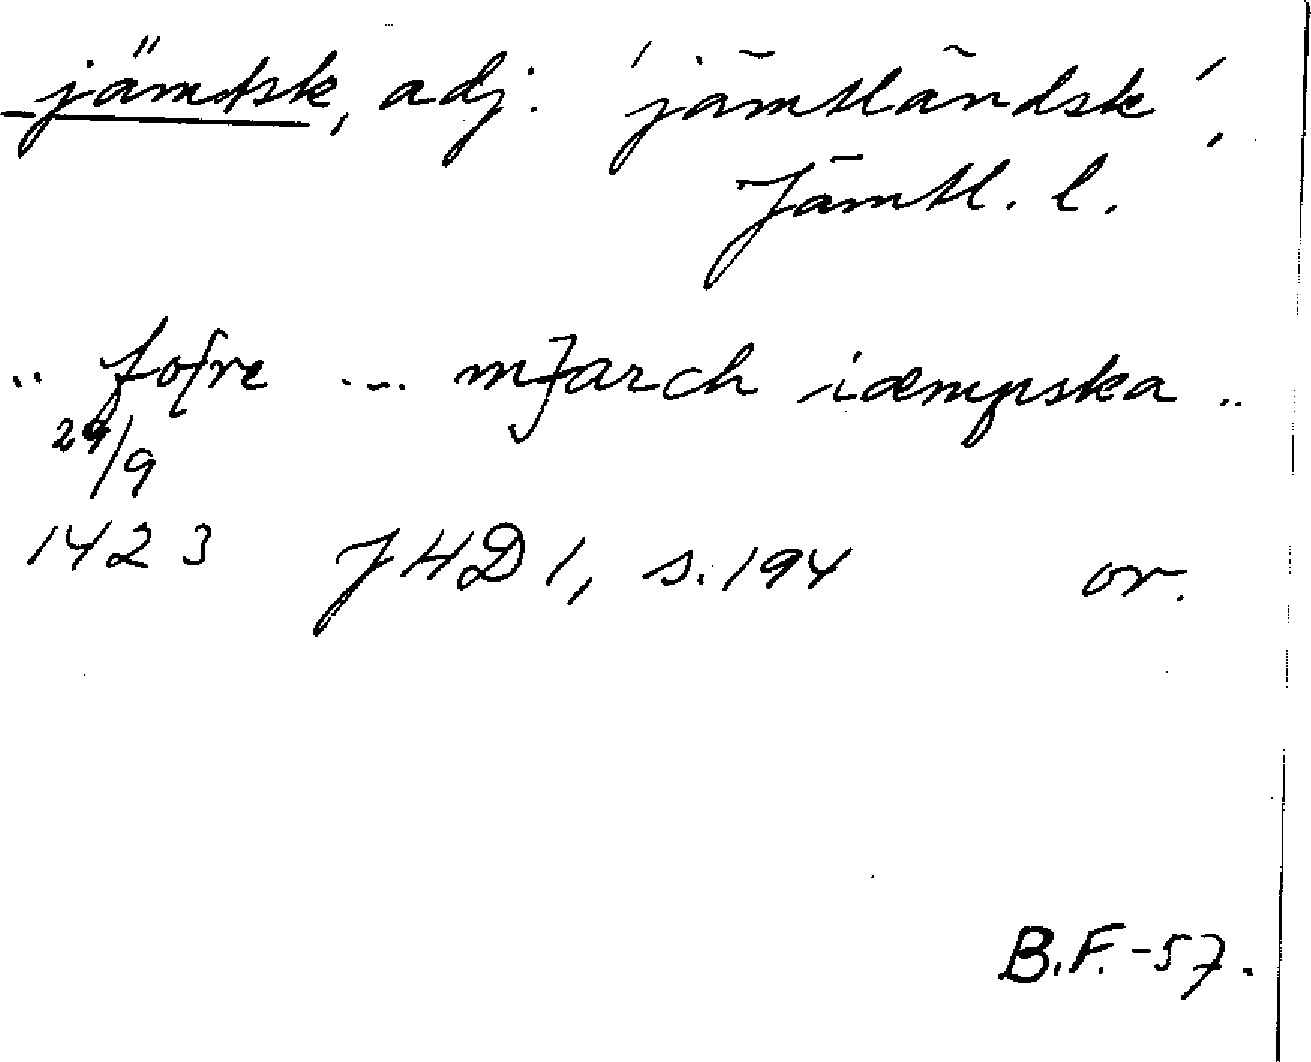 jämtsk, adj. 'jämtländsk',
Jämtl. l.
.. fo[re ... m]arch iæmpska ..
29/9
1423 JHD 1, s. 194 or.
B.F.-57.